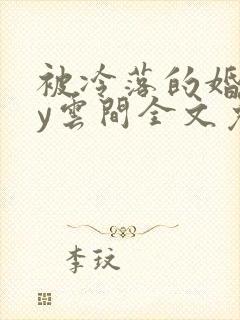 被冷落的婚
y雲間全文
李玟